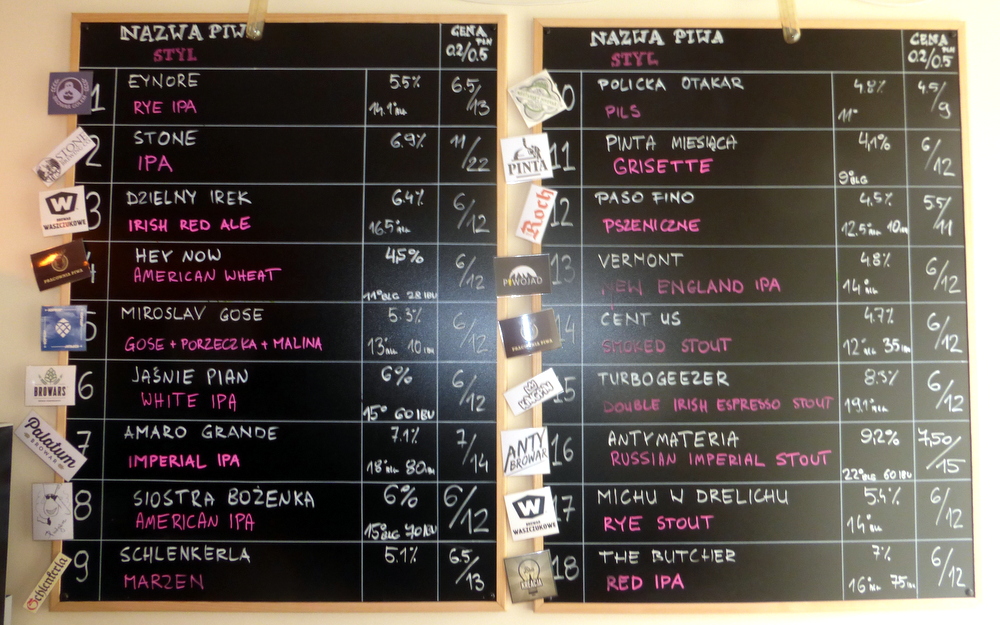 NAZWA PIWA
STYL
CENA PLN
0.2/0.5
1 EYNORE 5.5% 6.5/13
RYE IPA 14.1°BLG
STONE
2 STONE 6.9% 11/22
IPA
W
BROWAR
WASZCZUKOWE
3 DZIELNY IREK 6.4% 6/12
IRISH RED ALE 16.5°BLG
PRACOWNIA PIWA
4 HEY NOW 4,5% 6/12
AMERICAN WHEAT 11°BLG 28 IBU
5 MIROSLAV GOSE 5.3% 6/12
GOSE + PORZECZKA + MALINA 13°BLG 10 IBU
BROWARS
6 JAŚNIE PIAN 6% 6/12
WHITE IPA 15° 60 IBU
Palatum
BROWAR
7 AMARO GRANDE 7.1% 7/14
IMPERIAL IPA 18°BLG 80 IBU
8 SIOSTRA BOŻENKA 6% 6/12
AMERICAN IPA 15°BLG 70 IBU
Schlenkerla
9 SCHLENKERLA 5.1% 6.5/13
MARZEN
NAZWA PIWA
STYL
CENA PLN
0.2/0.5
0 POLICKA OTAKAR 4.8% 4.5/9
PILS 11°
PINTA
11 PINTA MIESIĄCA 4,1% 6/12
GRISETTE 9°BLG
Roch
12 PASO FINO 4.5% 5.5/11
PSZENICZNE 12.5°BLG 10 IBU
PIWOJAD
13 VERMONT 4.8% 6/12
NEW ENGLAND IPA 14°BLG
PRACOWNIA PIWA
14 CENT US 4.7% 6/12
SMOKED STOUT 12°BLG 35 IBU
15 TURBOGEEZER 8.5% 6/12
DOUBLE IRISH ESPRESSO STOUT 19.1°BLG
ANTY
BROWAR
16 ANTYMATERIA 9,2% 7,50/15
RUSSIAN IMPERIAL STOUT 22°BLG 60 IBU
W
BROWAR
WASZCZUKOWE
17 MICHU W DRELICHU 5.4% 6/12
RYE STOUT 14°BLG
18 THE BUTCHER 7% 6/12
RED IPA 16°BLG 75 IBU